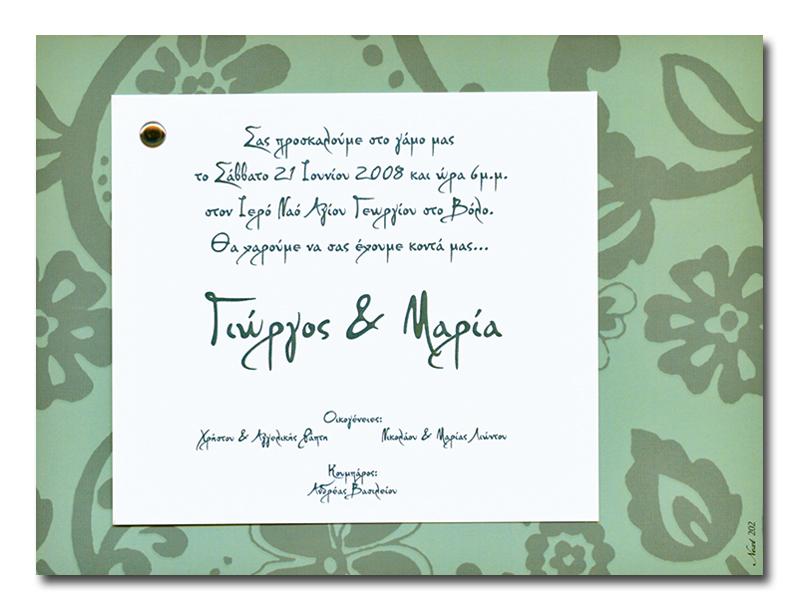 Σας προσκαλούμε στο γάμο μας
το Σάββατο 21 Ιουνίου 2008 και ώρα 6μ.μ.
στον Ιερό Ναό Αγίου Γεωργίου στο Βόλο.
Θα χαρούμε να σας έχουμε κοντά μας...
Γιώργος & Μαρία
Οικογένειες:
Χρήστου & Αγγελικής Ράπτη
Νικολάου & Μαρίας Λιώντου
Κουμπάρος:
Ανδρέας Βασιλείου
Next 202